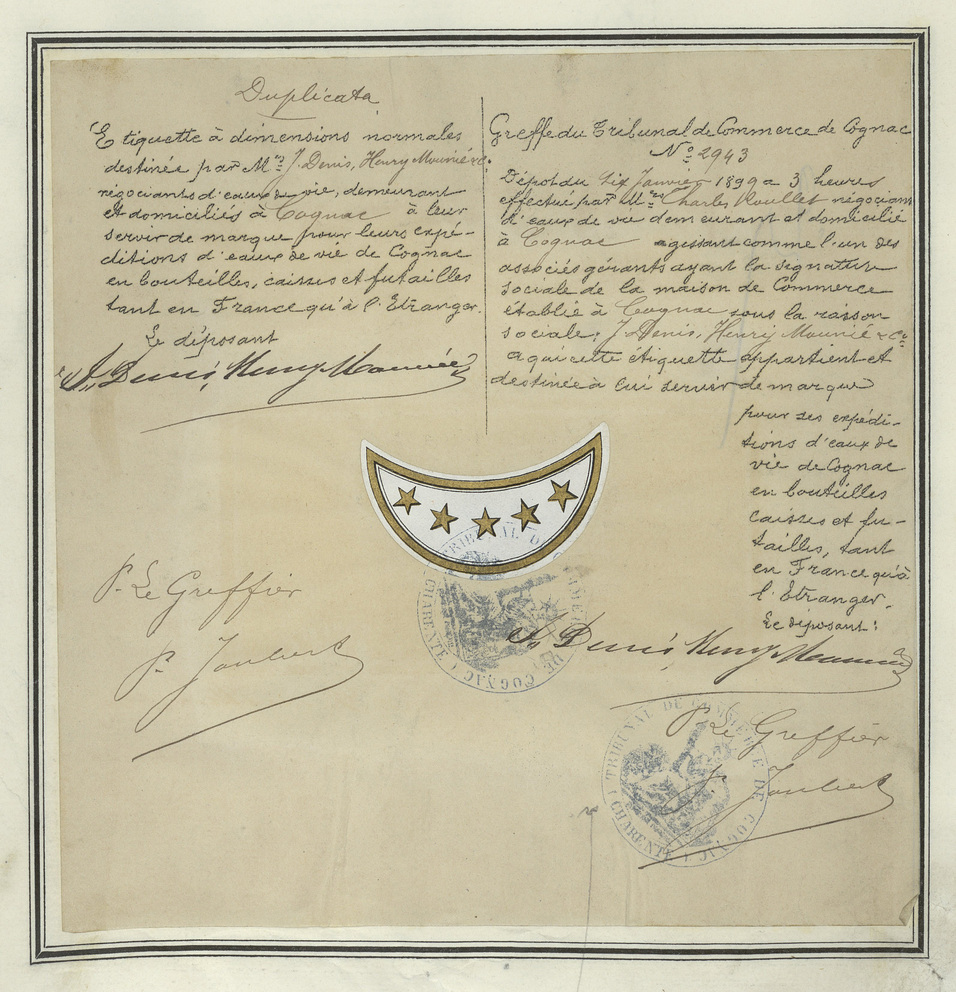 Duplicata
Etiquette à dimensions normales
destinée par M.rs J. Denis, Henry Mounié & C.o
négociants d'eaux de vie, demeurant
et domiciliés à Cognac à leur
servir de marque pour leurs expé-
ditions d'eaux de vie de Cognac
en bouteilles, caisses et futailles
tant en France qu'à l'Etranger.
Le déposant
J. Denis, Henry Mounié
P. Le Greffier
P. Joubert
Greffe du Tribunal de Commerce de Cognac
N.o 2943
Dépot du six Janvier 1899 a 3 heures
effectué par M. Charles Roullet négociant
d'eaux de vie demeurant et domicilié
à Cognac agissant comme l'un des
associés gérants ayant la signature
sociale de la maison de Commerce
établie à Cognac sous la raison
sociale: J. Denis, Henry Mounié & C.o
a qui cette étiquette appartient et
destinée à lui servir de marque
pour ses expédi-
tions d'eaux de
vie de Cognac
en bouteilles
caisses et fu-
tailles, tant
en France qu'à
l'Etranger.
Le déposant:
J. Denis, Henry Mounié
P. Le Greffier
P. Joubert
TRIBUNAL DE COMMERCE DE COGNAC
CHARENTE
TRIBUNAL DE COMMERCE DE COGNAC
CHARENTE